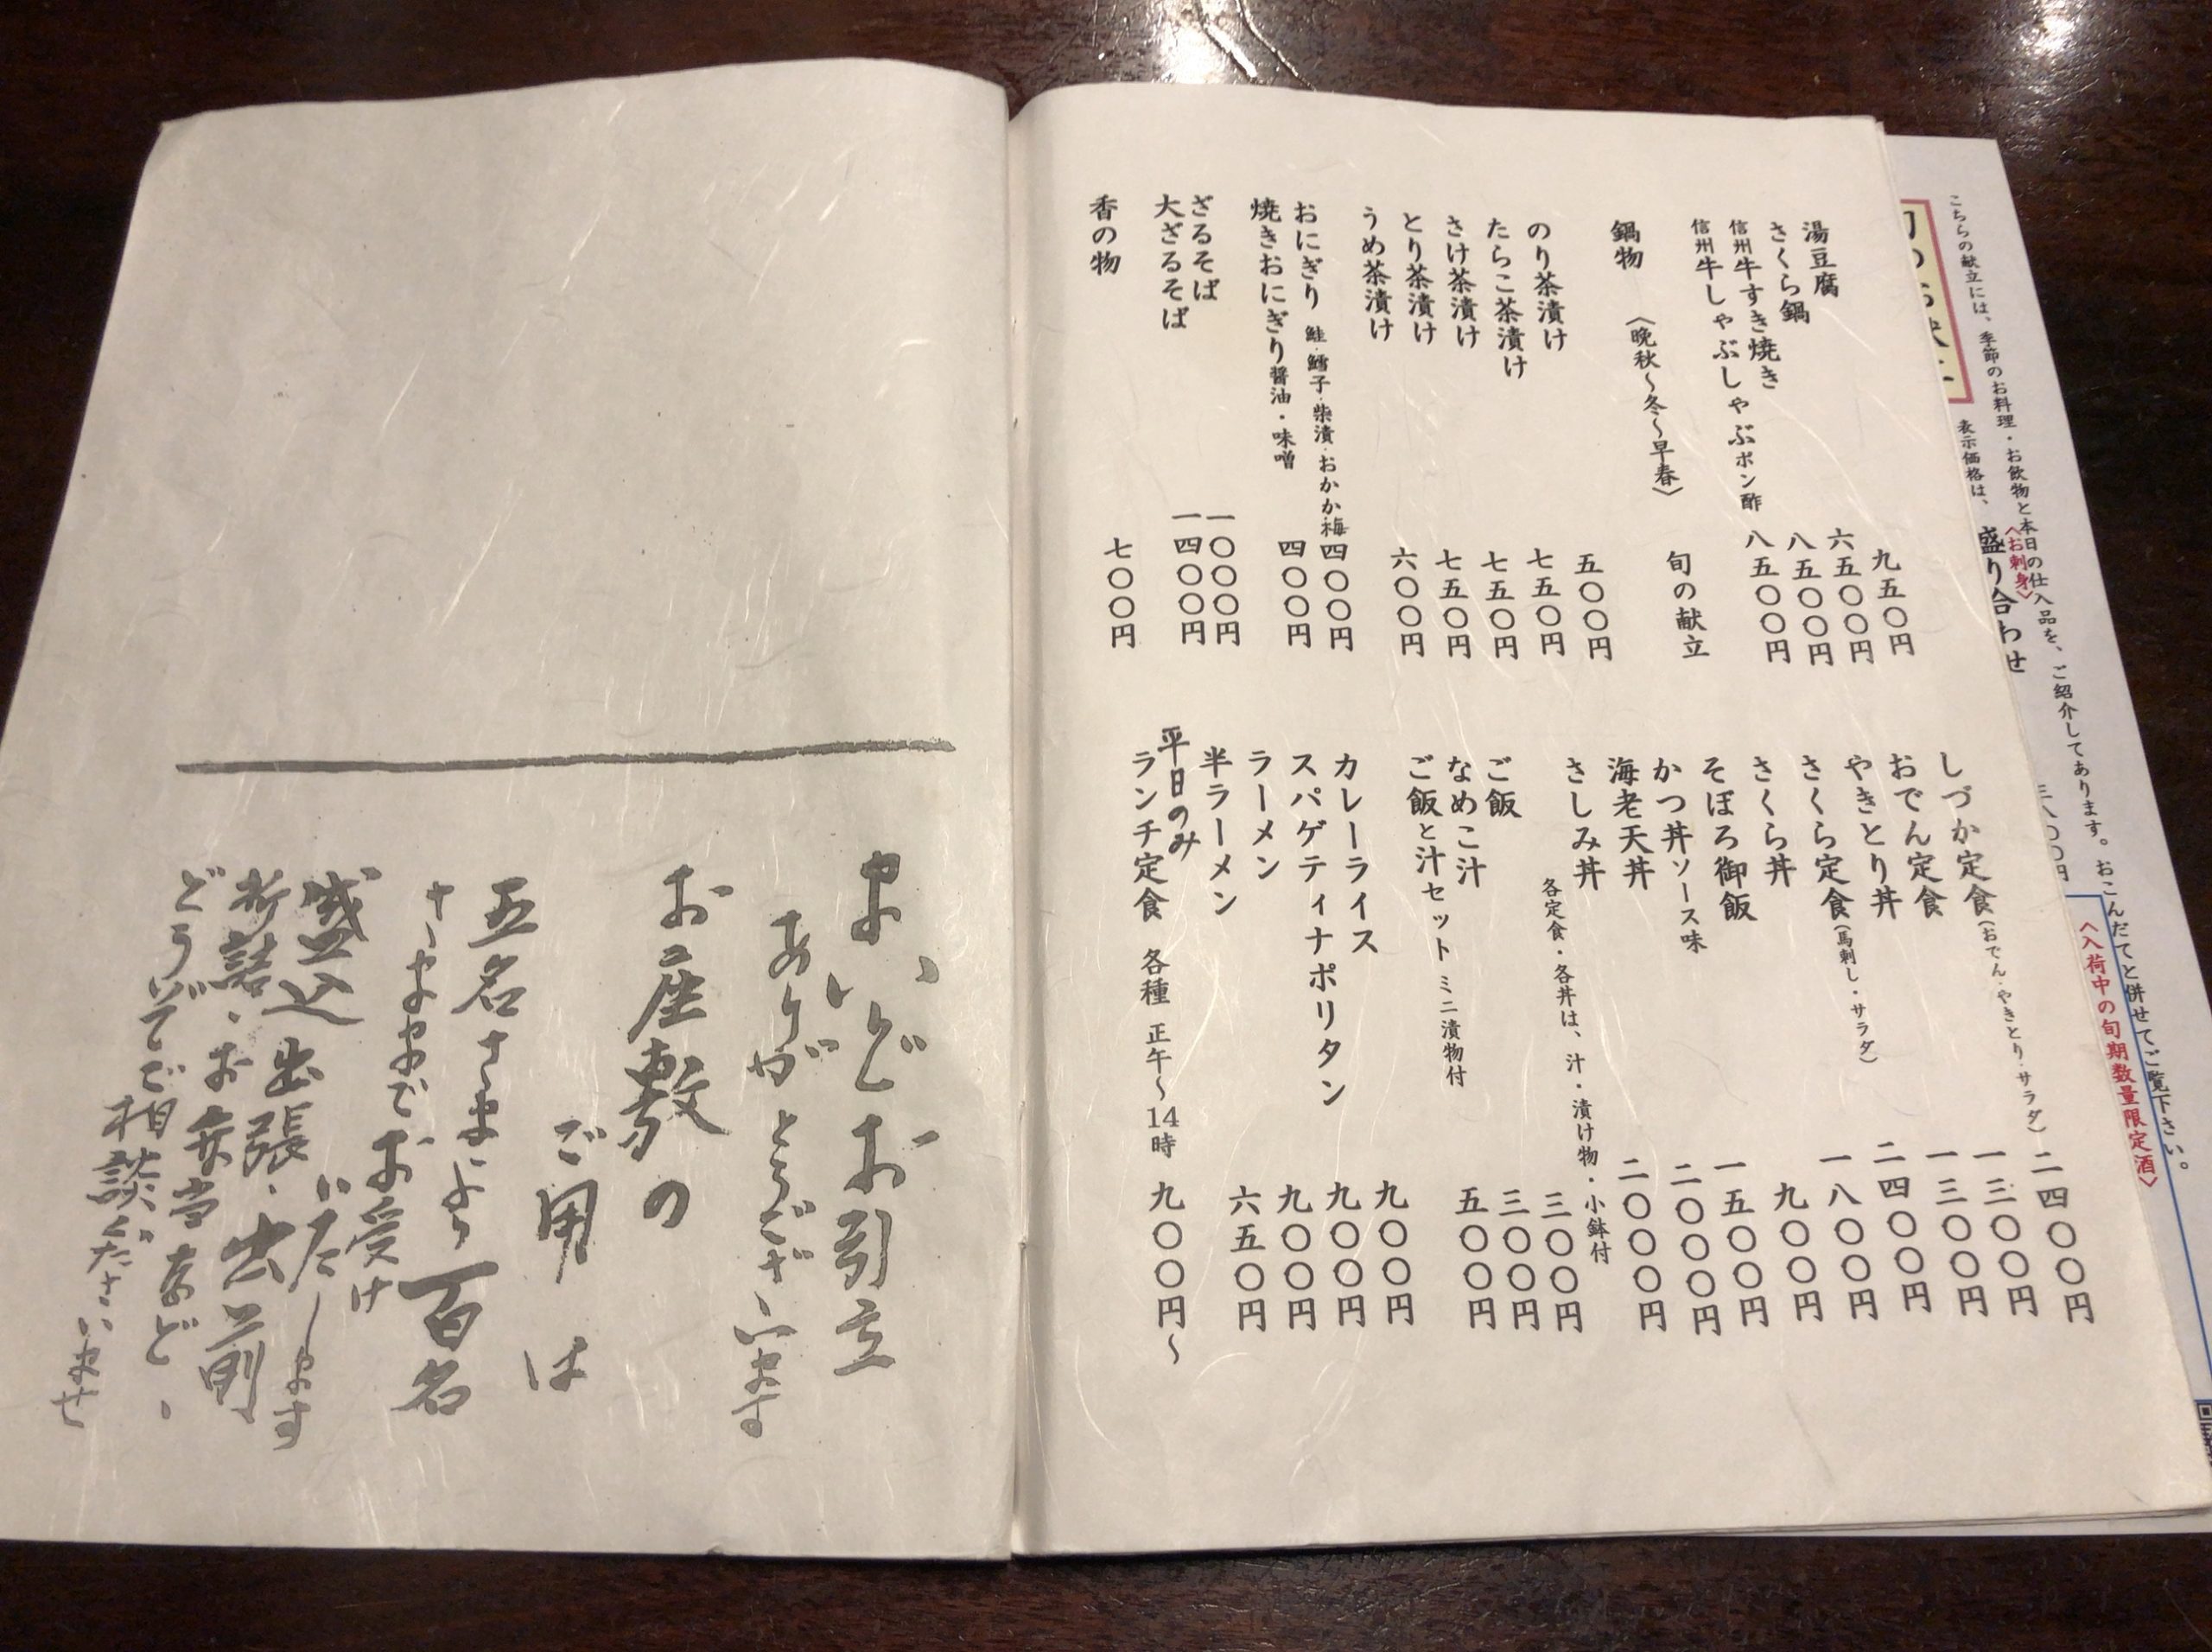 こちらの献立には、季節のお料理・お飲物と本日の仕入品を、ご紹介してあります。おこんだてと併せてご覧下さい。
表示価格は、
〈お刺身〉
盛り合わせ
〈入荷中の旬期数量限定酒〉
湯豆腐 九五〇円
さくら鍋 六五〇〇円
信州牛すき焼き 八五〇〇円
信州牛しゃぶしゃぶポン酢 八五〇〇円
鍋物 〈晩秋〜冬〜早春〉 旬の献立
のり茶漬け 五〇〇円
たらこ茶漬け 七五〇円
さけ茶漬け 七五〇円
とり茶漬け 七五〇円
うめ茶漬け 六〇〇円
おにぎり 鮭・鱈子・柴漬・おかか・梅 四〇〇円
焼きおにぎり 醤油・味噌 四〇〇円
ざるそば 一〇〇〇円
大ざるそば 一四〇〇円
香の物 七〇〇円
しづか定食(おでん・やきとり・サラダ) 二四〇〇円
おでん定食 一三〇〇円
やきとり丼 一三〇〇円
さくら定食(馬刺し・サラダ) 二四〇〇円
さくら丼 一八〇〇円
そぼろ御飯 九〇〇円
かつ丼ソース味 一五〇〇円
海老天丼 二〇〇〇円
さしみ丼 二〇〇〇円
各定食・各丼は、汁・漬け物・小鉢付
ご飯 三〇〇円
なめこ汁 三〇〇円
ご飯と汁セット ミニ漬物付 五〇〇円
カレーライス 九〇〇円
スパゲティナポリタン 九〇〇円
ラーメン 九〇〇円
半ラーメン 六五〇円
平日のみ
ランチ定食 各種 正午〜14時 九〇〇円〜
まいどお引立
ありがとうございます
お座敷の
ご用は
五名さまより百名
さままでお受け
いたします
盛込出張・出前
折詰・お弁当など・
どうぞご相談くださいませ